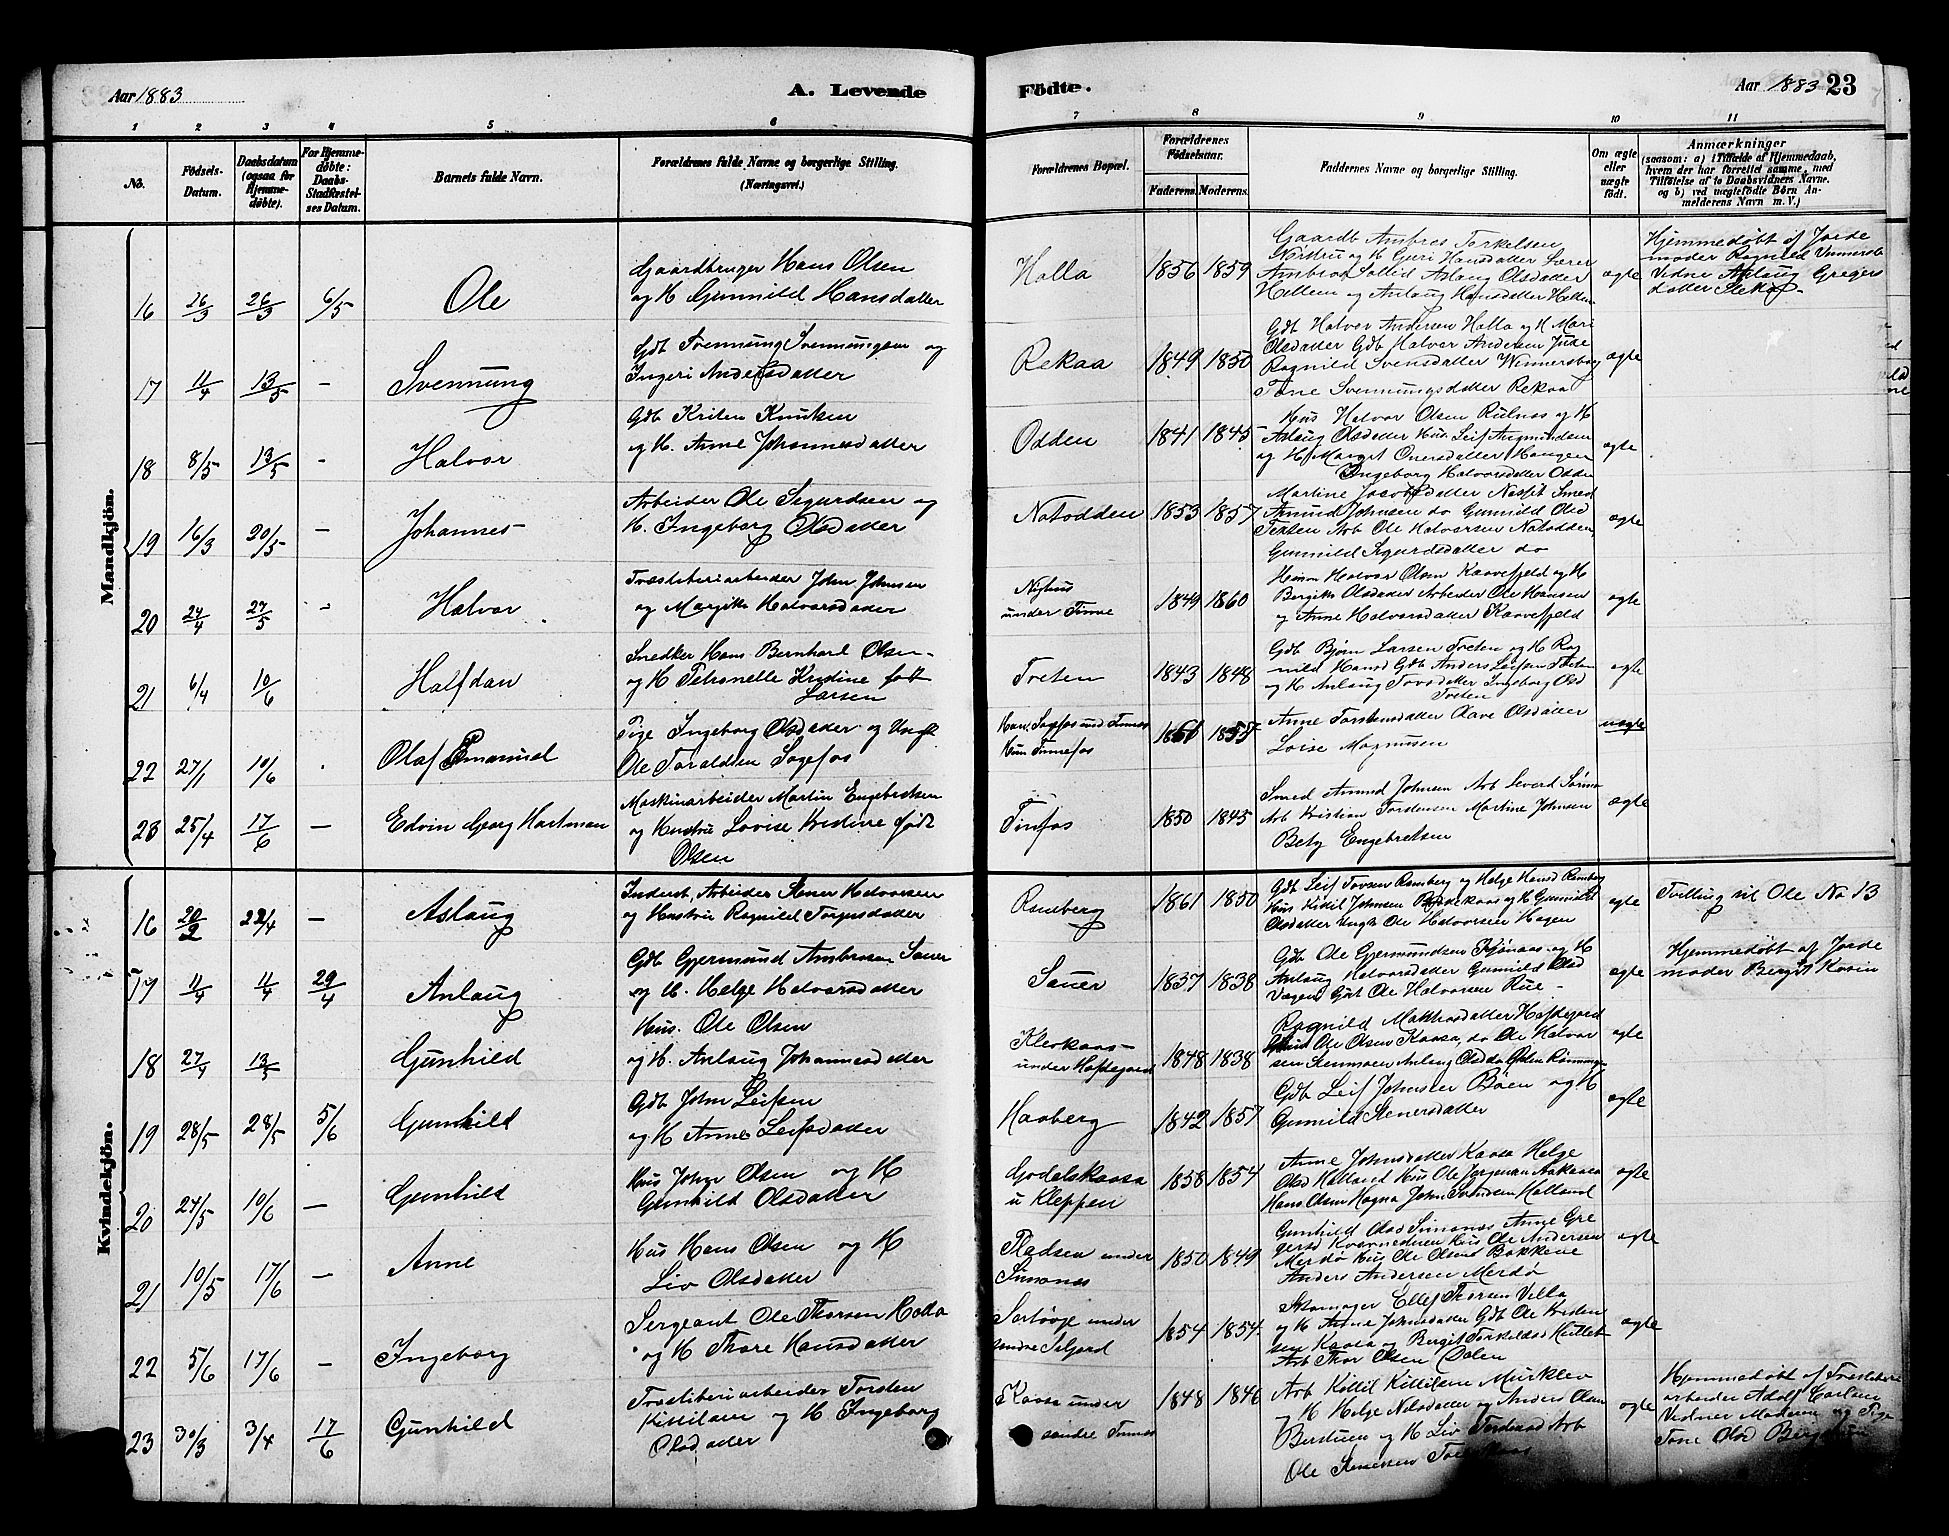 Aar 1883
A. Levende
Födte.
Aar 1883
23
1 2 3 4 5 6 7 8 9 10 11
No.
Födsels-
Datum.
Daabsdatum
(ogsaa for
Hjemme-
døbte).
For Hjemme-
døbte:
Daabs-
Stadfæstel-
ses Datum.
Barnets fulde Navn.
Forældrenes fulde Navne og borgerlige Stilling.
(Næringsvei.)
Forældrenes Bopæl.
Forældrenes
Födselsaar.
Faderens.
Moderens.
Faddernes Navne og borgerlige Stilling.
Om ægte
eller
uægte
født.
Anmærkninger
(saasom: a) i Tilfælde af Hjemmedaab,
hvem der har forrettet samme, med
Tilføielse af to Daabsvidners Navne.
og b) ved uægtefødte Børn An-
melderens Navn m. V.)
Mandkjön.
16 26/3 26/3 6/5 Ole
Gaardbruger Hans Olsen
og H Gunnild Hansdatter
Holla 1856 1859
Gaardb Ambros Torkelsen
ægte
Hjemmedøbt af Jorde
moder Ragnild
Vidner Aslaug Gregers
datter
17 11/4 13/5 - Svennung
Gdb Svennung Svennungsen og
Ingeri Andersdatter
Rekaa 1849 1850
Gdb Halvor Andersen Holla og H Mari
Olsdatter Gdb Halvor Andersen
Ragnild Svensdatter
Tone Svennungsdatter Rekaa
ægte
18 8/5 13/5 - Halvor
Gdb Kristen Knutsen
og H. Anne Johannesdatter
Odden 1841 1845
Hus Halvor Olsen Rulnas og H
Aslaug Olsdatter Hus Leif
og H Margit Haugen
Ingeborg Halvorsdatter Odden
ægte
19 16/3 20/5 - Johannes
Arbeider Ole Sigurdsen og
H. Ingeborg Olsdatter
Notodden 1853 1857
Martine Jacobsdatter Smed
Amund Johnsen do Gunnild Olsd
Arb Ole Halvorsen Notodden
Gunnild Sigurdsdatter do
ægte
20 24/4 27/5 - Halvor
Træsliberiarbeider John Johnsen
og Margith Halvorsdatter
Nighus
under Tinne
1849 1860
Halvor Olsen Kaavefjeld og H
Bergith Olsdatter Arbeider Ole Hansen
og Anne Halvorsdatter Kaavefjeld
ægte
21 6/4 10/6 Halfdan
Snedker Hans Bernhard Olsen
og H Petronelle Kristine født
Larsen
Tveten 1843 1848
Gdb Bjørn Larsen Tveten og H Rag
nild Hansd Gdb Anders Leifsen Tveten
og H Anlaug Tovsdatter Ingeborg Olsd
Tveten
ægte
22 27/1 10/6 . Olaf Emanuel
Pige Ingeborg Olsdatter og Ungk
Ole Toraldsen Sagefos
Hun Tinnefos
1855
Anne Torstensdatter Olave Olsdatter
Loise Magnusen
uægte
23 25/4 17/6 - Edvin Georg Hartman
Maskinarbeider Martin Engebretsen
og Hustru Lovise Kristine født
Olsen
Tinfos 1850 1845
Smed Amund Johnsen Arb
Arb Kristian Torstensen Martine Johnsen
Betzy Engebretsen
ægte
Kvindekjön.
16 20/2 22/4 - Aslaug
Inderst, Arbeider Stener Halvorsen
og Hustru Ragnild Torgersdatter
Ramberg 1861 1850
Gdb Leif Tovsen Ramberg og Helge Hansd Ramberg
Hus Kittil Johnsen og H Gunnild
Olsdatter Ungk Ole Halvorsen Hagen
ægte
Tvilling til Ole No 13
17 11/4 11/4 29/4 Anlaug
Gdb Gjermund Ambrosen Sauer
og H. Helge Halvorsdatter
Sauer 1837 1838
Gdb Ole Gjermundsen og H
Anlaug Halvorsdatter Gunnild Olsd
Gdb Ole Halvorsen Rue
ægte
Hjemmedøbt af Jorde
moder Bergit Kasin
18 27/4 13/5 Gunhild
Hus. Ole Olsen
og H. Anlaug Johannesdatter
Kleokaas
under Haftegaard
1848 1838
Ragnild Matthisdatter Haftegaard
Ole Olsen Kaasa, do Ole Halvor
sen Anlaug Olsdatter
ægte
19 28/5 28/5 5/6 Gunhild
Gdb John Leifsen
og H Anne Leifsdatter
Haaberg 1842 1857
Gdb Leif Johnsen Böen og H
Gunnild Stenersdatter
ægte
20 24/5 10/6 - Gunhild
Hus John Olsen og H
Gunhild Olsdatter
Godalskaasa
u Kleppen
1858 1854
Anne Johnsdatter Kaasa Helge
Olsd Holland Hus Ole Jørgensen
Hans Olsen Hagna John Svendsen Holland
ægte
21 10/5 17/6 - Anne
Hus Hans Olsen og H
Liv Olsdatter
Pladsen under
Simonas
1850 1849
Gunhild Olsd Simonas Anne Gre
gersd Hus Ole Andersen
Merdø Hus Ole Olsen Bakkene
Anders Andersen Merdø
ægte
22 5/6 17/6 - Ingeborg
Sergeant Ole Thorsen Holla
og H Thore Hansdatter
under
søndre Seljord
1854 1854
Skomager Ellef Thorsen Villa
og H Anne Johnsdatter Gdb Ole Kristen
sen Kaasa og Bergit Torkelsd
Arb Thor Olsen Dalen
ægte
23 30/3 3/4 17/6 Gunhild
Træsliberiarbeider Torsten
Kittilsen og H Ingeborg
Olsdatter
Kaasa under
søndre Tinnes
1848 1846
Arb Kittil Kittilsen Murklev
og H Helge Nilsdatter og Anders Olsen
og H Liv Arb
Ole Stenersen
ægte
Hjemmedøbt af Træsliberi
arbeider Adolf Carlsen
Vidner Moderen og Pige
Tone Olsd